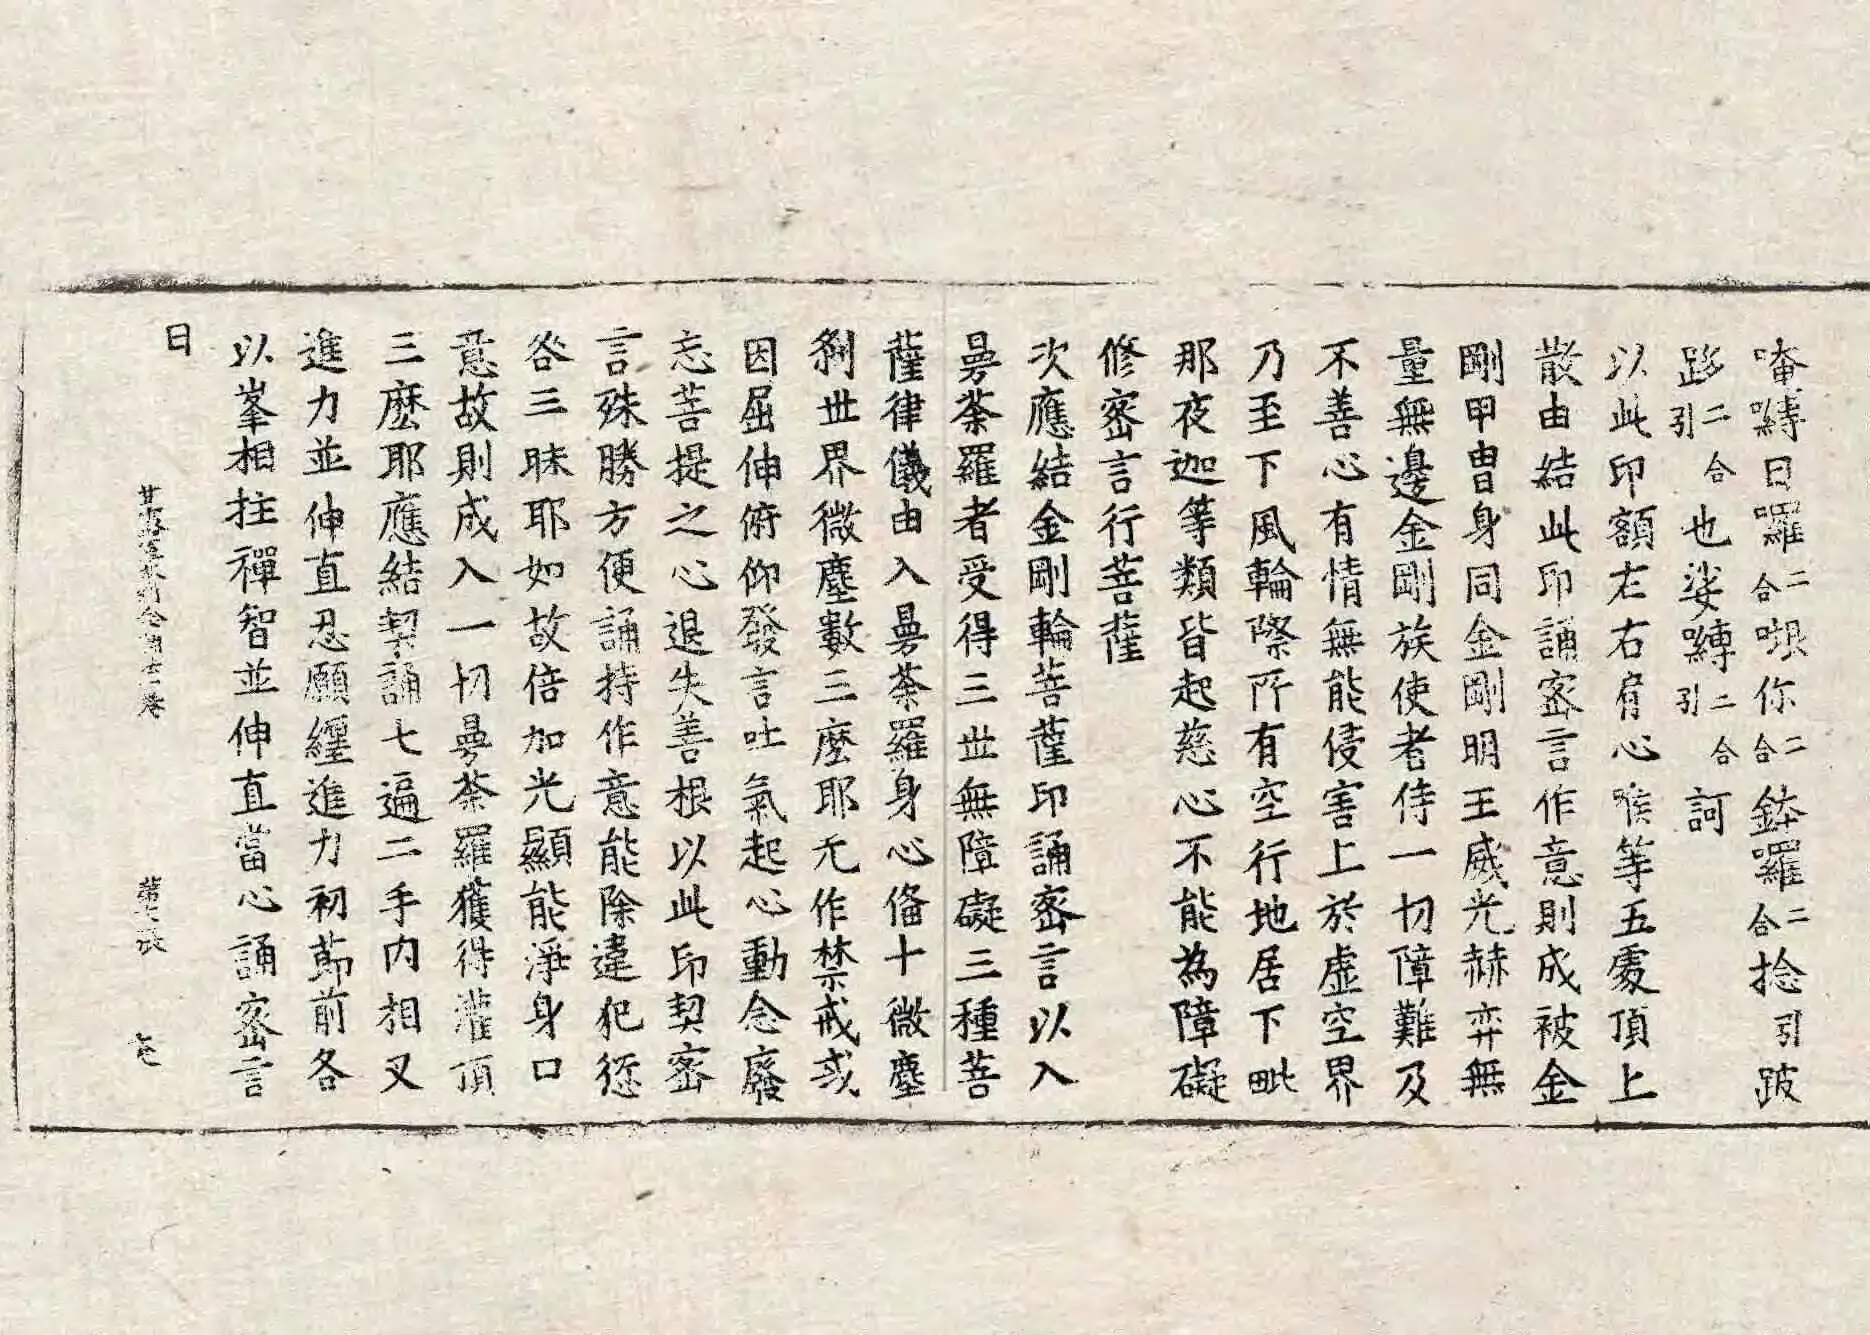 唵嚩日囉二合哏你二合鉢囉二合捻引跛
跢引二合也娑嚩引二合訶
以此印額左右肩心喉等五處頂上
散由結此印誦密言作意則成被金
剛甲冑身同金剛明王威光赫弈無
量無邊金剛族使者侍一切障難及
不善心有情無能侵害上於虛空界
乃至下風輪際所有空行地居下毗
那夜迦等類皆起慈心不能為障礙
修密言行菩薩
次應結金剛輪菩薩印誦密言以入
曼荼羅者受得三世無障礙三種菩
薩律儀由入曼荼羅身心俻十微塵
剎世界微塵數三麼耶无作禁戒或
因屈伸俯仰發言吐氣起心動念廢
忘菩提之心退失善根以此印契密
言殊勝方便誦持作意能除違犯愆
咎三昧耶如故倍加光顯能淨身口
意故則成入一切曼荼羅獲得灌頂
三麼耶應結契誦七遍二手內相叉
進力並伸直忍願纏進力初節前各
以峯相拄禪智並伸直當心誦密言
曰